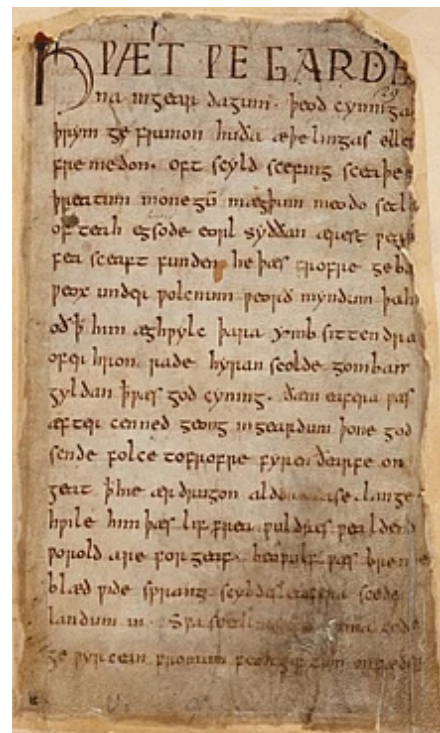 HǷÆT ǷE GARDE
na ingear dagum. þeod cyninga
þrym ge frunon huða æþelingas elle
fre medon. oft scyld scefing sceaþe
þreatum monegū mægþum meodo setla
of teah egsode eorl syððan ærest ƿearþ
fea sceaft funden heþæs frofre geba
ƿeox under ƿolcnum ƿeorð myndum þah
oð ꝥ him æghƿylc þara ymb sittendra
ofer hron rade hyran scolde gomban
gyldan ꝥ ƿæs god cyning. ðæm eafera ƿæs
æfter cenned geong ingeardum þone god
sende folce tofrofre fyren ðearfe on
geat ꝥ hie ær drugon aldor ase. lange
hƿile him þæs lif frea ƿuldres ƿealdend
ƿorold are for geaf. beoƿulf ƿæs breme
blæd ƿide sprang scyldes eafera scede
landum in. Sƿa
ge ƿyrcean fromum feoh giftum